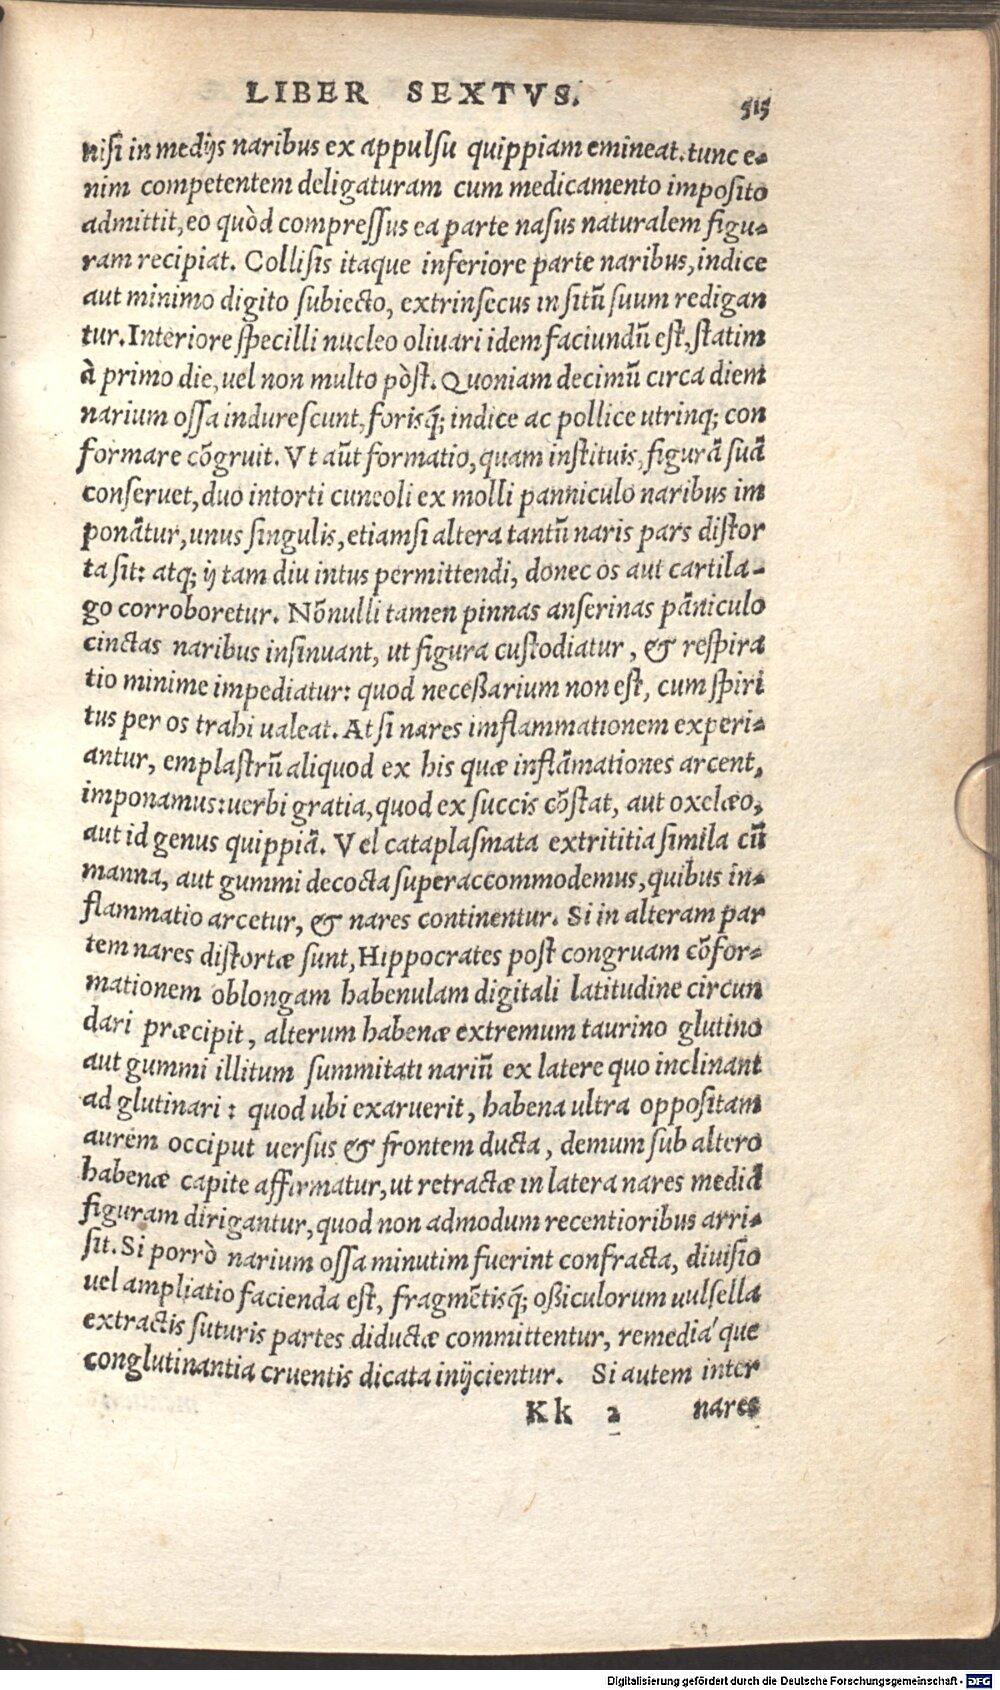 LIBER SEXTVS. 515
niſi in medijs naribus ex appulſu quippiam emineat. tunc e-
nim competentem deligaturam cum medicamento impoſito
admittit, eo quòd compreſſus ea parte naſus naturalem figu-
ram recipiat. Colliſis itaque inferiore parte naribus, indice
aut minimo digito ſubiecto, extrinſecus in ſitũ ſuum redigan
tur. Interiore ſpecilli nucleo oliuari idem faciundũ eſt, ſtatim
à primo die, uel non multo pòſt. Quoniam decimũ circa diem
narium oſſa indureſcunt, foriſq́; indice ac pollice utrinq; con
formare cõgruit. Vt aũt formatio, quam inſtituis, figurã ſuã
conſeruet, duo intorti cuneoli ex molli panniculo naribus im
ponãtur, unus ſingulis, etiamſi altera tantũ naris pars diſtor
ta ſit: atq; ij tam diu intus permittendi, donec os aut cartila-
go corroboretur. Nõnulli tamen pinnas anſerinas pãniculo
cinctas naribus inſinuant, ut figura cuſtodiatur, & reſpira
tio minime impediatur: quod neceßarium non eſt, cum ſpiri
tus per os trahi ualeat. At ſi nares imflammationem experi-
antur, emplaſtrũ aliquod ex his quæ inflãmationes arcent,
imponamus: uerbi gratia, quod ex ſuccis cõſtat, aut oxelæo,
aut id genus quippiã. Vel cataplaſmata extrititia ſimila cũ
manna, aut gummi decocta ſuperaccommodemus, quibus in-
flammatio arcetur, & nares continentur. Si in alteram par
tem nares diſtortæ ſunt, Hippocrates poſt congruam cõfor-
mationem oblongam habenulam digitali latitudine circun
dari præcipit, alterum habenæ extremum taurino glutino
aut gummi illitum ſummitati nariũ ex latere quo inclinant
ad glutinari: quod ubi exaruerit, habena ultra oppoſitam
aurem occiput uerſus & frontem ducta, demum ſub altero
habenæ capite affirmatur, ut retractæ in latera nares mediã
figuram dirigantur, quod non admodum recentioribus arri-
ſit. Si porrò narium oſſa minutim fuerint confracta, diuiſio
uel ampliatio facienda eſt, fragmẽtiſq́; oßiculorum uulſella
extractis ſuturis partes diductæ committentur, remediáque
conglutinantia cruentis dicata inijcientur. Si autem inter
Kk 2 nares
Digitalisierung gefördert durch die Deutsche Forschungsgemeinschaft - DFG